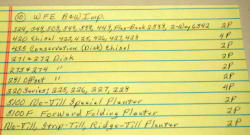 ⑩ WFE B&W Imp.
524, 544, 503, 549, 544, 449, Flex-Back 2544, 2-Way 6542 2P
420 Chisel 423, 425, 426, 427, 429 4P
435 Conservation (Disk) Chisel 2P
271 & 272 Disk 2P
273 & 274 " 2P
281 Offset " 2P
220 Series: 225, 226, 227, 228 4P
5100 No-Till Special Planter 2P
5100F Forward Folding Planter 2P
No-Till, Strip-Till, Ridge-Till Planter 2P